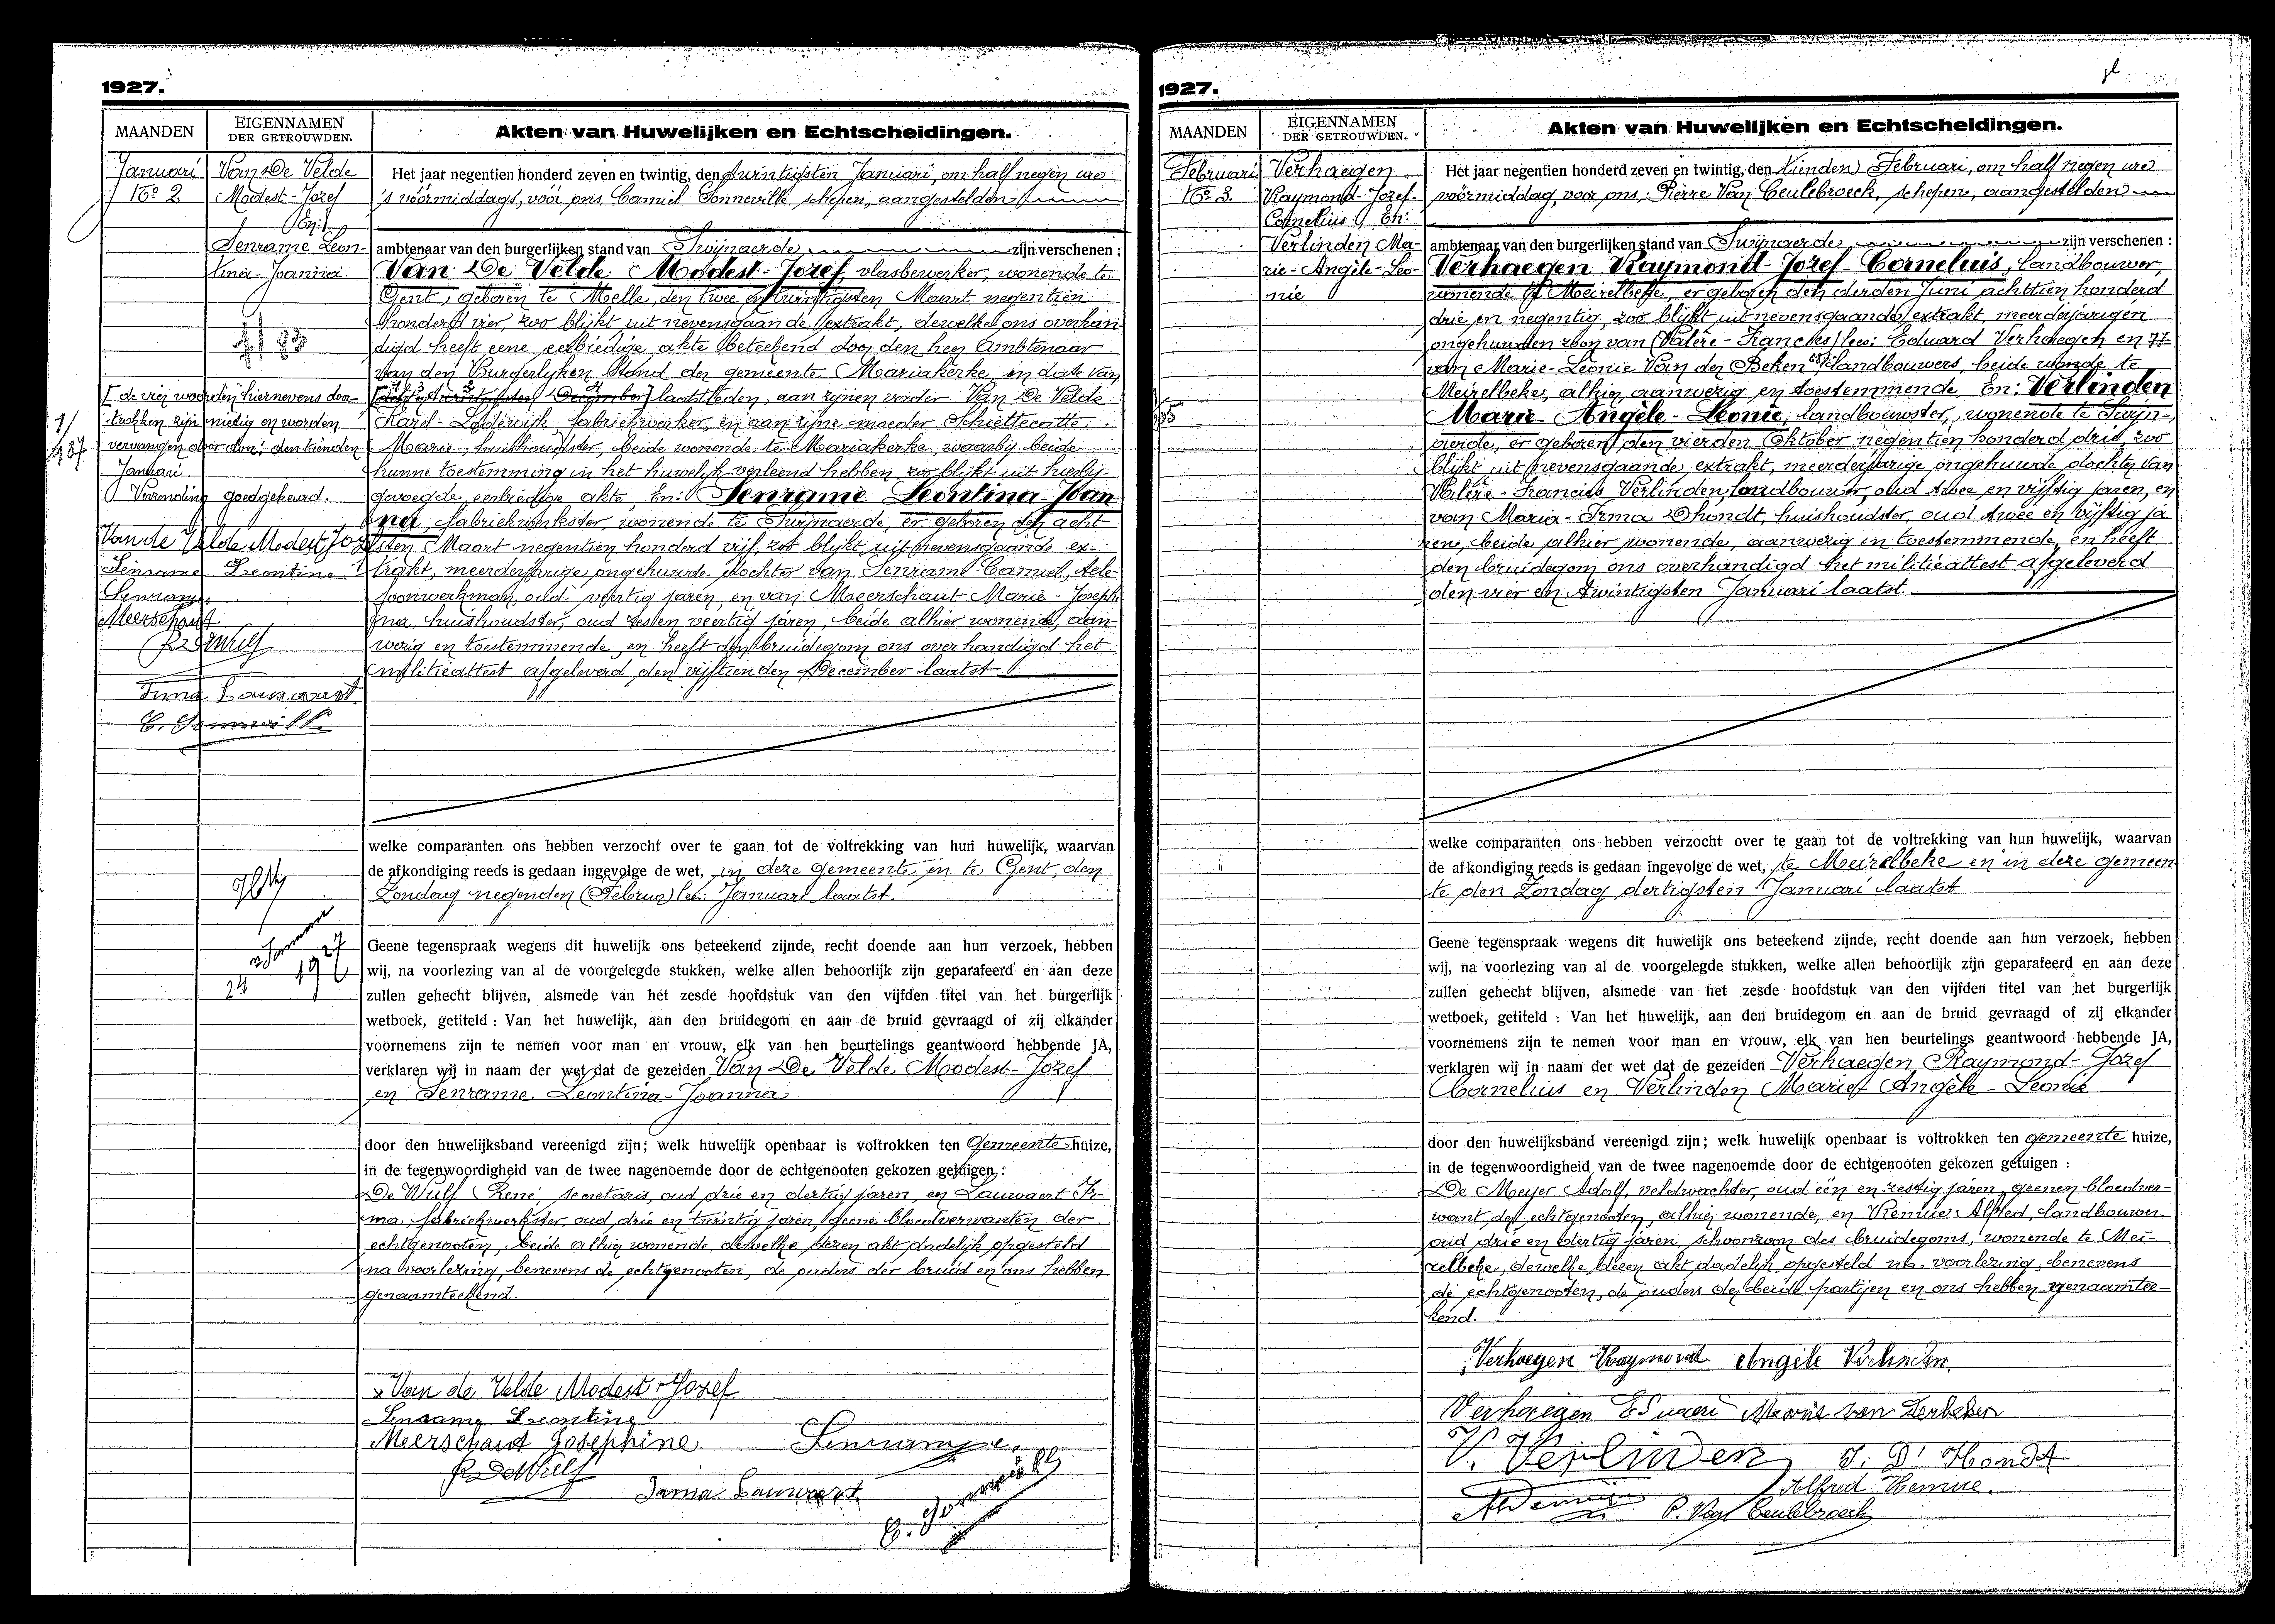 1927.
MAANDEN
EIGENNAMEN
DER GETROUWDEN.
Akten van Huwelijken en Echtscheidingen.
Januari
No 2
Van De Velde
Modest-Jozef
En:
Senrame Leon-
tina-Joanna.
[de vier woorden hiernevens door-
trokken zijn nietig en worden
vervangen door: den tienden
Januari
Verzending goedgekeurd.
Van de Velde Modest Jozef
Senrame Leontine
Senrame
Meerschaut
R. De Wulf
Irma Lauwaert
C. Sonneville
24 Januari 1927
Het jaar negentien honderd zeven en twintig, den twintigsten Januari, om half negen ure
's vóórmiddags, vóór ons Camiel Sonneville schepen, aangestelden
ambtenaar van den burgerlijken stand van Swijnaerde zijn verschenen :
Van De Velde Modest-Jozef, vlasbewerker, wonende te
Gent, geboren te Melle, den twee en twintigsten Maart negentien
honderd vier, zoo blijkt uit nevensgaande extrakt, dewelke ons overhan-
digd heeft eene eerbiedige akte beteekend door den heer Ambtenaar
van den Burgerlijken Stand der gemeente Mariakerke, in date van
laatstleden, aan zijnen vader Van De Velde
Karel-Lodewijk, fabriekwerker, en aan zijne moeder Schiettecatte
Marie, huishoudster, beide wonende te Mariakerke, waarbij beide
hunne toestemming in het huwelijk verleend hebben, zoo blijkt uit hierbij-
gevoegde eerbiedige akte, En: Senrame Leontina-Joan-
na, fabriekwerkster, wonende te Swijnaerde, er geboren den acht-
sten Maart negentien honderd vijf, zoo blijkt uit nevensgaande ex-
trakt, meerderjarige ongehuwde dochter van Senrame Camiel, tele-
foonwerkman, oud veertig jaren, en van Meerschaut Marie-Josephi-
na, huishoudster, oud zes en veertig jaren, beide alhier wonende, aan-
wezig en toestemmende, en heeft den bruidegom ons overhandigd het
militieattest afgeleverd den vijftienden December laatst
welke comparanten ons hebben verzocht over te gaan tot de voltrekking van hun huwelijk, waarvan
de afkondiging reeds is gedaan ingevolge de wet, in deze gemeente en te Gent, den
Zondag negenden (Februa) lees: Januari laatst.
Geene tegenspraak wegens dit huwelijk ons beteekend zijnde, recht doende aan hun verzoek, hebben
wij, na voorlezing van al de voorgelegde stukken, welke allen behoorlijk zijn geparafeerd en aan deze
zullen gehecht blijven, alsmede van het zesde hoofdstuk van den vijfden titel van het burgerlijk
wetboek, getiteld : Van het huwelijk, aan den bruidegom en aan de bruid gevraagd of zij elkander
voornemens zijn te nemen voor man en vrouw, elk van hen beurtelings geantwoord hebbende JA,
verklaren wij in naam der wet dat de gezeiden Van De Velde Modest-Jozef
en Senrame Leontina-Joanna
door den huwelijksband vereenigd zijn; welk huwelijk openbaar is voltrokken ten Gemeente huize,
in de tegenwoordigheid van de twee nagenoemde door de echtgenooten gekozen getuigen :
De Wulf René, secretaris, oud drie en dertig jaren, en Lauwaert Ir-
ma, fabriekwerkster, oud drie en twintig jaren, geene bloedverwanten der
echtgenooten, beide alhier wonende, dewelke dezen akt dadelijk opgesteld
na voorlezing, benevens de echtgenooten, de ouders der bruid en ons hebben
genaamteekend.
Van de Velde Modest-Jozef
Senrame Leontine
Meerschaut Josephine Senrame
R. De Wulf
Irma Lauwaert
C. Sonneville
1927.
MAANDEN
EIGENNAMEN
DER GETROUWDEN.
Akten van Huwelijken en Echtscheidingen.
Februari
No 3.
Verhaegen
Raymond-Jozef-
Cornelius, En:
Verlinden Ma-
rie-Angèle-Leo-
nie
Het jaar negentien honderd zeven en twintig, den tienden Februari, om half negen ure
vóórmiddag, voor ons, Pierre Van Ceulebroeck, schepene, aangestelden
ambtenaar van den burgerlijken stand van Swijnaerde, zijn verschenen :
Verhaegen Raymond-Jozef-Cornelius, landbouwer,
wonende te Meirelbeke, er geboren den derden Juni achttien honderd
drie en negentig, zoo blijkt uit nevensgaande extrakt, meerderjarigen
ongehuwden zoon van (Valère-Francies) lees: Eduard Verhaegen en 77
van Marie-Leonie Van der Beken landbouwers, beide wonende te
Meirelbeke, alhier aanwezig en toestemmende. En: Verlinden
Marie-Angèle-Leonie, landbouwster, wonende te Swijn-
aerde, er geboren den vierden Oktober negentien honderd drie, zoo
blijkt uit nevensgaande extrakt, meerderjarige ongehuwde dochter van
Valère-Francies Verlinden, landbouwer, oud twee en vijftig jaren, en
van Maria-Irma Dhondt, huishoudster, oud twee en vijftig ja
ren, beide alhier wonende, aanwezig en toestemmende, en heeft
den bruidegom ons overhandigd het militieattest afgeleverd
den vier en twintigsten Januari laatst.
welke comparanten ons hebben verzocht over te gaan tot de voltrekking van hun huwelijk, waarvan
de afkondiging reeds is gedaan ingevolge de wet, te Meirelbeke en in deze gemeen
te den Zondag dertigsten Januari laatst
Geene tegenspraak wegens dit huwelijk ons beteekend zijnde, recht doende aan hun verzoek, hebben
wij, na voorlezing van al de voorgelegde stukken, welke allen behoorlijk zijn geparafeerd en aan deze
zullen gehecht blijven, alsmede van het zesde hoofdstuk van den vijfden titel van het burgerlijk
wetboek, getiteld : Van het huwelijk, aan den bruidegom en aan de bruid gevraagd of zij elkander
voornemens zijn te nemen voor man en vrouw, elk van hen beurtelings geantwoord hebbende JA,
verklaren wij in naam der wet dat de gezeiden Verhaegen Raymond-Jozef
Cornelius en Verlinden Marie-Angèle-Leonie
door den huwelijksband vereenigd zijn; welk huwelijk openbaar is voltrokken ten gemeente huize,
in de tegenwoordigheid van de twee nagenoemde door de echtgenooten gekozen getuigen :
De Meyer Adolf, veldwachter, oud één en zestig jaren, geenen bloedver-
want der echtgenooten, alhier wonende, en Alfred, landbouwer
oud drie en dertig jaren, schoonzoon des bruidegoms, wonende te Mei-
relbeke, dewelke dezen akt dadelijk opgesteld na voorlezing, benevens
de echtgenooten, de ouders der beide partijen en ons hebben genaamtee-
kend.
Verhaegen Raymond Angèle Verlinden
Verhaegen Eduard Marie van Derbeken
V. Verlinden I. D'Hondt
Alfred
P. Van Ceulebroeck